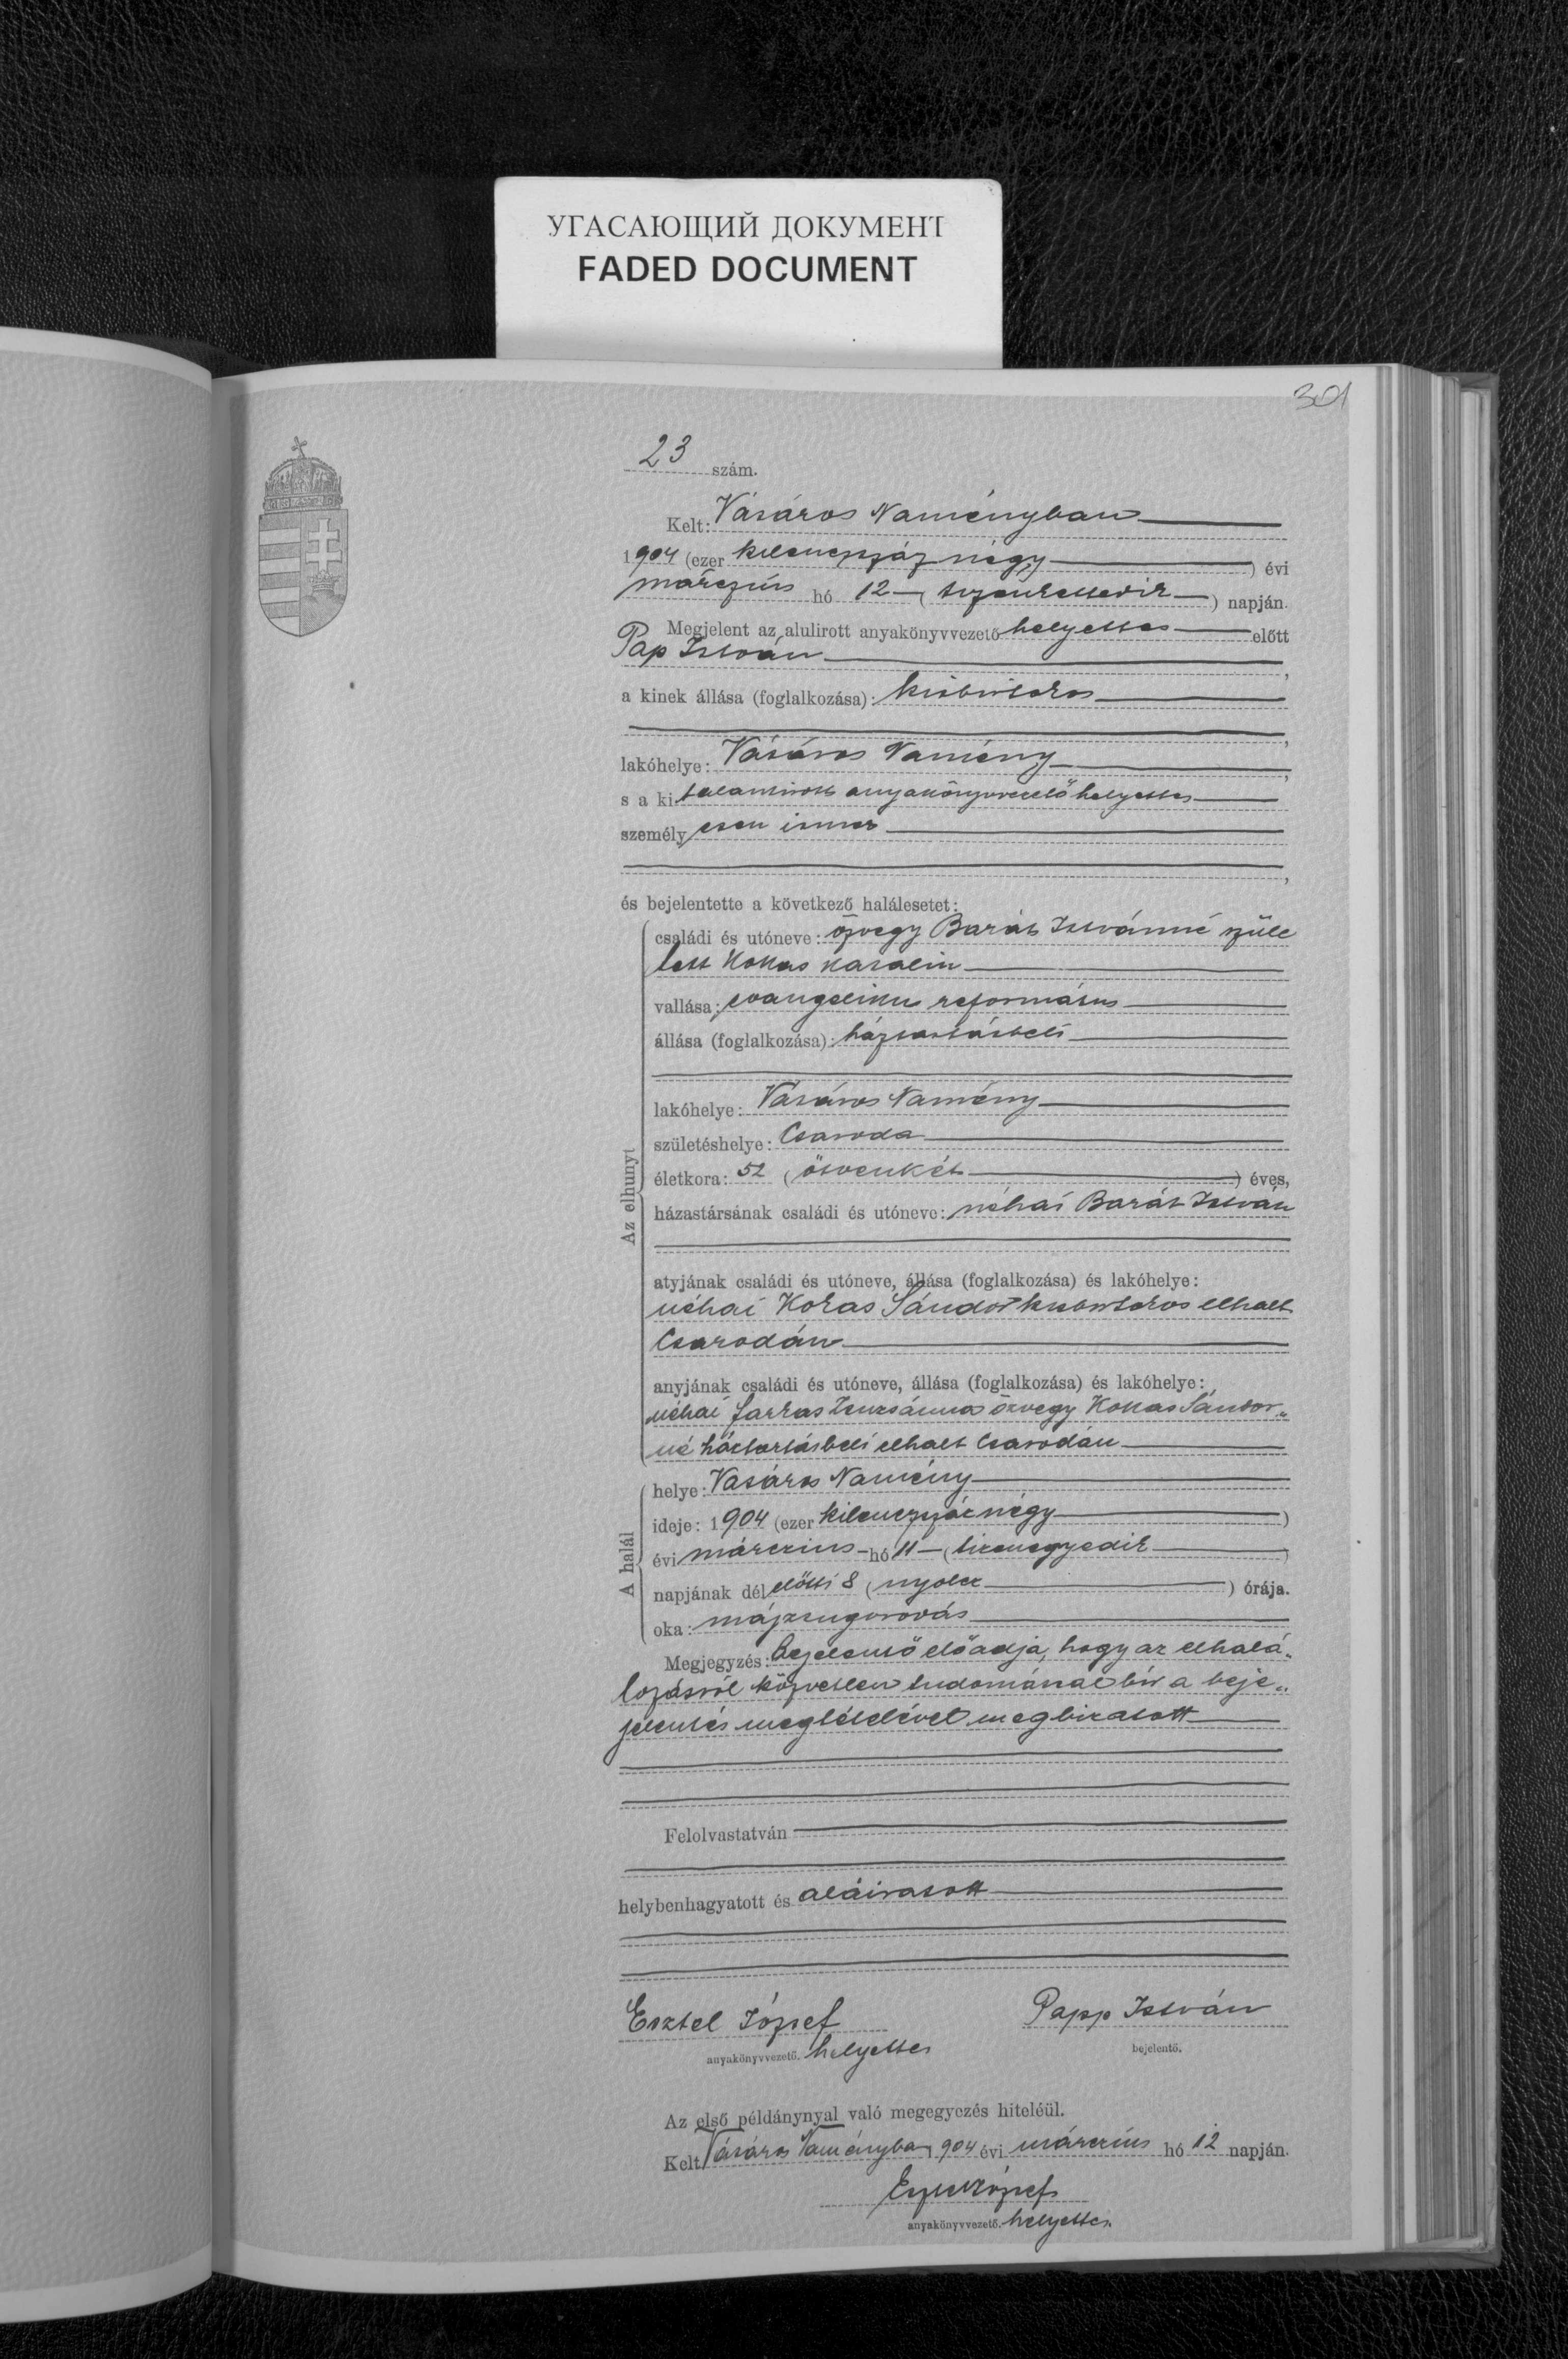 УГАСАЮЩИЙ ДОКУМЕНТ
FADED DOCUMENT
301
23 szám.
Kelt: Vásáros Naményban
1904 (ezer kilenczszáz négy) évi
márczius hó 12 (tizenkettedik) napján.
Megjelent az alulirott anyakönyvvezető helyettes előtt
Pap István,
a kinek állása (foglalkozása): kisbirtokos
lakóhelye: Vásáros Namény,
s a kit alantirott anyakönyvvezető helyettes
személyesen ismer
és bejelentette a következő halálesetet:
Az elhunyt
családi és utóneve: özvegy Barát Istvánné szüle
tett Kokas Katalin
vallása: evangelikus református
állása (foglalkozása): háztartásbeli
lakóhelye: Vásáros Namény
születéshelye: Csaroda
életkora: 52 (ötvenkét) éves,
házastársának családi és utóneve: néhai Barát István
atyjának családi és utóneve, állása (foglalkozása) és lakóhelye:
néhai Kokas Sándor kisbirtokos elhalt
Csarodán
anyjának családi és utóneve, állása (foglalkozása) és lakóhelye:
néhai Farkas Zsuzsánna özvegy Kokas Sándor„
né háztartásbeli elhalt Csarodán
A halál
helye: Vásáros Namény
ideje: 1904 (ezer kilenczszáz négy)
évi márczius hó 11 (tizenegyedik)
napjának délelőtti 8 (nyolcz) órája.
oka: májzsugorodás
Megjegyzés: Bejelentő előadja, hogy az elhalá„
lozásról közvetlen tudomással bír a beje„
jelentés megtételével megbizatott
Felolvastatván
helybenhagyatott és aláiratott
Esztel József Papp István
anyakönyvvezető. helyettes bejelentő.
Az első példánynyal való megegyezés hiteléül.
Kelt Vásáros Naményba 1904 évi márczius hó 12 napján.
Esztel József
anyakönyvvezető. helyettes